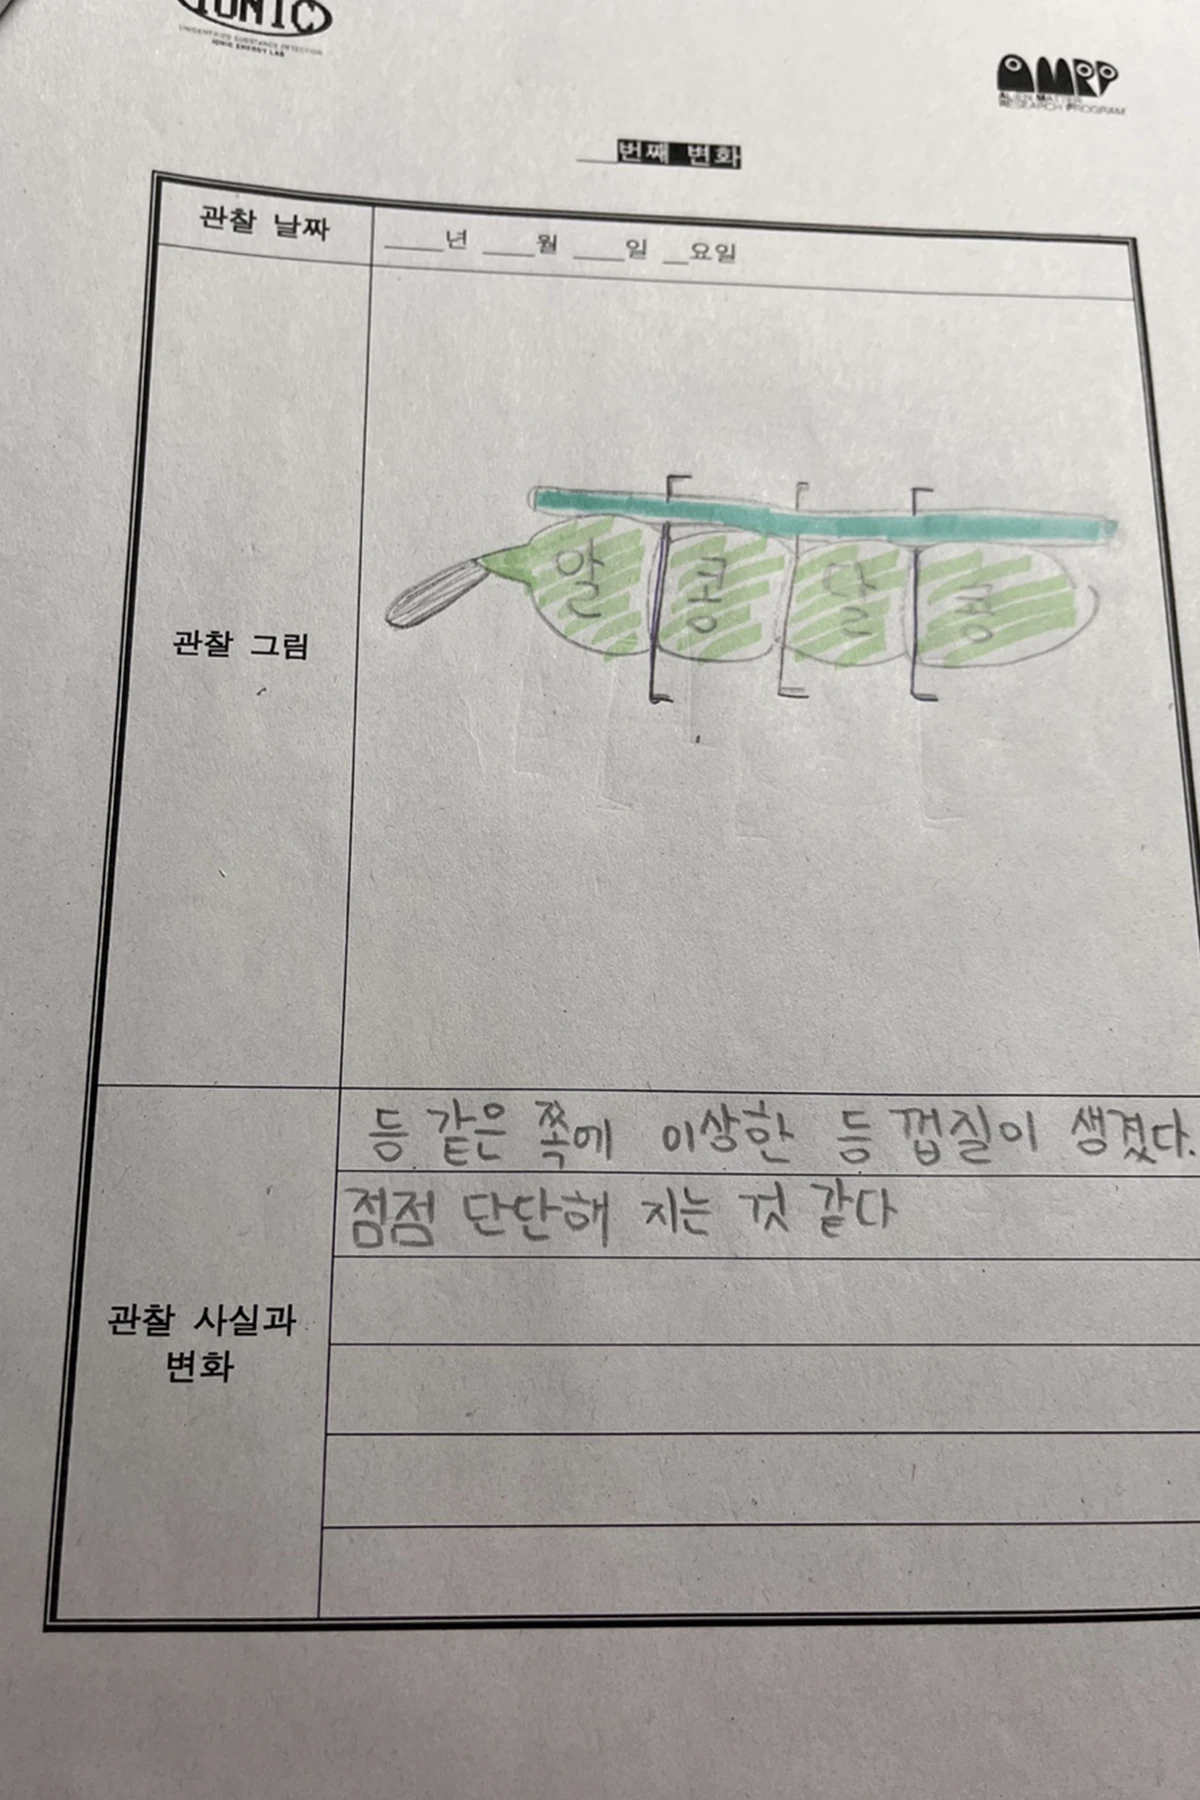 IONIC
UNIDENTIFIED SUBSTANCE DETECTION
IONIC ENERGY LAB
AMRP
ALIEN MATTER
RESEARCH PROGRAM
___번째 변화
관찰 날짜
____년 ____월 ____일 __요일
관찰 그림
알 콩 달 콩
등 같은 쪽에 이상한 등 껍질이 생겼다.
점점 단단해 지는 것 같다
관찰 사실과
변화